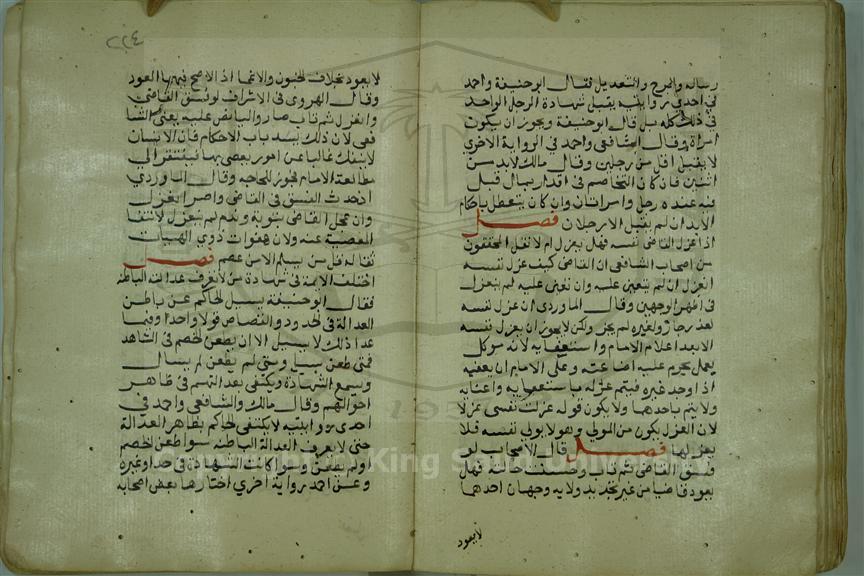 رساله والجرح والتعديل فقال ابوحنيفة واحمد
في احدي روايتيه يقبل شهادة الرجل الواحد
في ذلك كله بل قال ابوحنيفة ويجوز ان يكون
امراة وقال الشافعي واحمد في الرواية الاخري
لا يقبل اقل من رجلين وقال مالك لابد من
اثنين فان كان التخاصم في اقدار بمال قبل
فيه عنده رجل وامراتان وان كان يتعلق باحكام
الابدان لم يقبل الا رجلان فصل
اذا عزل القاضي نفسه فهل ينعزل ام لا نقل المحققون
من اصحاب الشافعي ان القاضي كيف عزل نفسه
انعزل ان لم يتعين عليه وان تعين عليه لم ينعزل
في اظهر الوجهين وقال الماوردي ان عزل نفسه
لعذر جاز ولغيره لم يجز ولكن لا يجوز ان يعزل نفسه
الا بعد اعلام الامام واستعفايه لانه موكل
بعمل يحرم عليه اضاعته وعلي الامام ان يعفيه
اذا وجد غيره فيتم عزله باستعفايه واعفايه
ولا يتم باحدهما ولا يكون قوله عزلت نفسي عزلا
لان العزل يكون من المولي وهو لا يولي نفسه فلا
يعزلها فصل قال الاصحاب لو
فسق القاضي ثم تاب وحسنت حاله فهل
يعود قاضيا من غير تجديد ولايه وجهان احدهما
لا يعود
٢٢٤
لا يعود بخلاف الجنون والاغما اذ الاصح فيهما العود
وقال الهروي في الاشراف لو فسق القاضي
وانعزل ثم تاب صار واليا نص عليه يعني الشا
فعي لان ذلك يسد باب الاحكام فان الانسان
لا ينفك غالبا عن امور يعصي بها فيفتقر الي
مطالعة الامام فجوز للحاجه وقال الماوردي
اذ حدث الفسق في القاضي واصر انعزل
وان عجل القاضي بتوبة وندم لم ينعزل لانتفا
العصمة عنه ولان هفوات ذوي الهيات
مقالة قل من يسلم الا من عصم فصل
اختلف الايمة في شهادة من لا يعرف عدالته الباطنه
فقال ابوحنيفة يسيل الحاكم عن باطن
العدالة في الحدود والقصاص قولا واحدا وفيما
عدا ذلك لا يسيل الا ان يطعن الخصم في الشاهد
فمتي طعن سيل ومتي لم يطعن لم يسال
ويسمع الشهادة ويكتفي بعدالتهم في ظاهر
احوالهم وقال مالك والشافعي واحمد في
احدي روايتيه لا يكتفي الحاكم بظاهر العدالة
حتي لا يعرف العدالة الباطنه سوا طعن الخصم
او لم يطعن وسوا كانت الشهادة في حد او غيره
وعن احمد رواية اخري اختارها بعض اصحابه